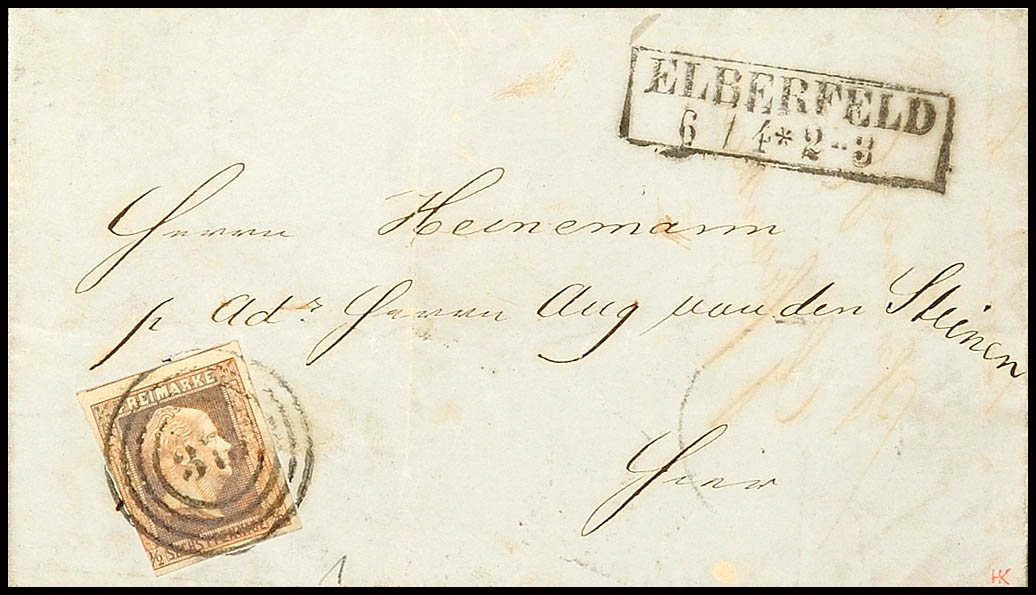 ELBERFELD
6 / 4 * 2-3
Herrn Heinemann
p Adr Herrn Aug von den Steinen
Hier
FREIMARKE
½ SILBERGR.
HK